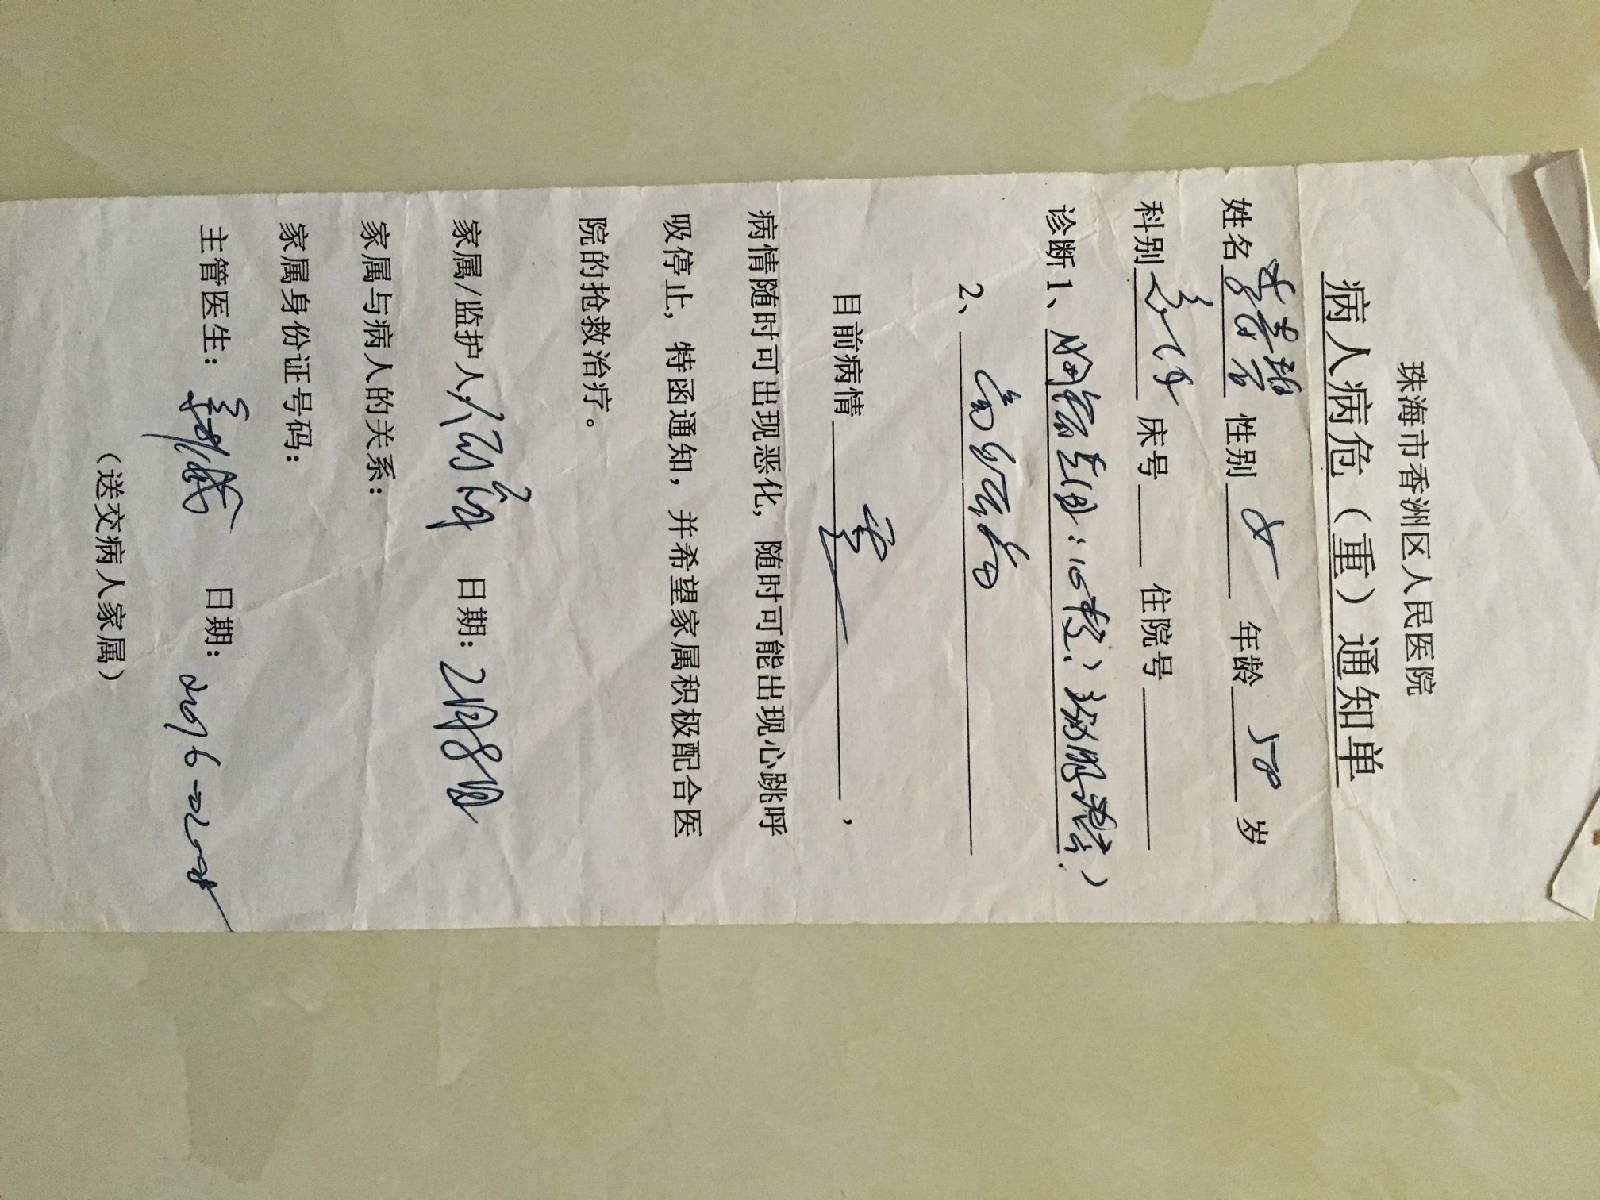 珠海市香洲区人民医院
病人病危（重）通知单
姓名 性别 女 年龄 58 岁
科别 急诊 床号 住院号
诊断1、胸痛查因：心梗？主动脉夹层？
2、高血压
目前病情 重 ，
病情随时可出现恶化，随时可能出现心跳呼
吸停止，特函通知，并希望家属积极配合医
院的抢救治疗。
家属/监护人 日期：2月8日
家属与病人的关系：
家属身份证号码：
主管医生： 日期：2016-02-08
（送交病人家属）